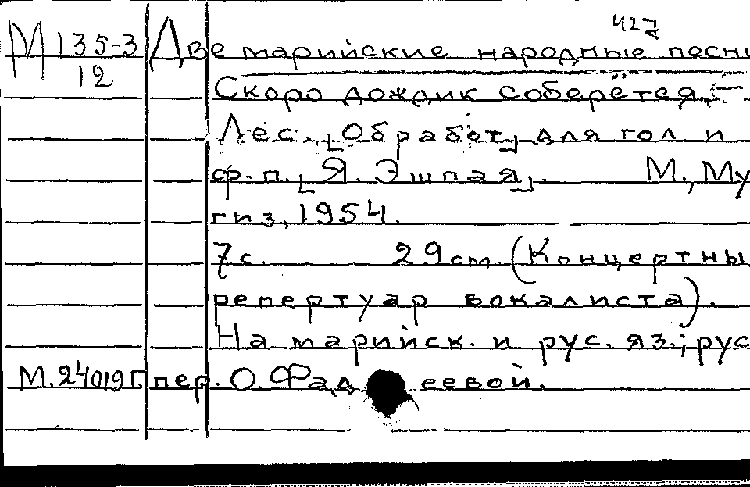 427
М 135-3 Две марийские народные песни
12 Скоро дождик соберётся, –
Лес. [Обработ] для гол и
ф.п. [Я. Эшпая]. М., Му
гиз, 1954.
7с. 29 см. (Концертны
репертуар вокалиста).
На марийск. и рус. яз.; рус
М.24019 г. пер. О. Фад еевой.